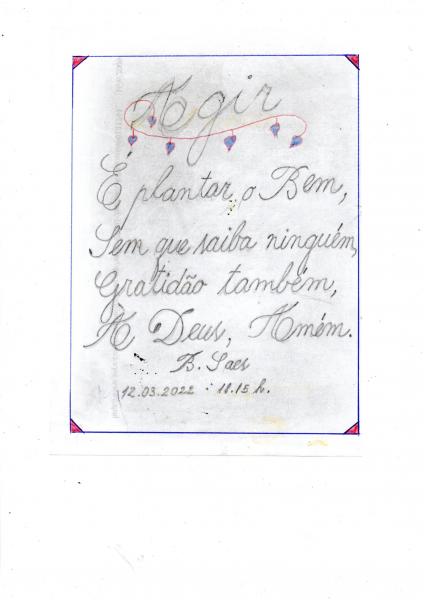 Agir
É plantar o Bem,
Sem que saiba ninguém,
Gratidão também,
À Deus, Amém.
B. Saes
12.03.2022 . 11.15 h.